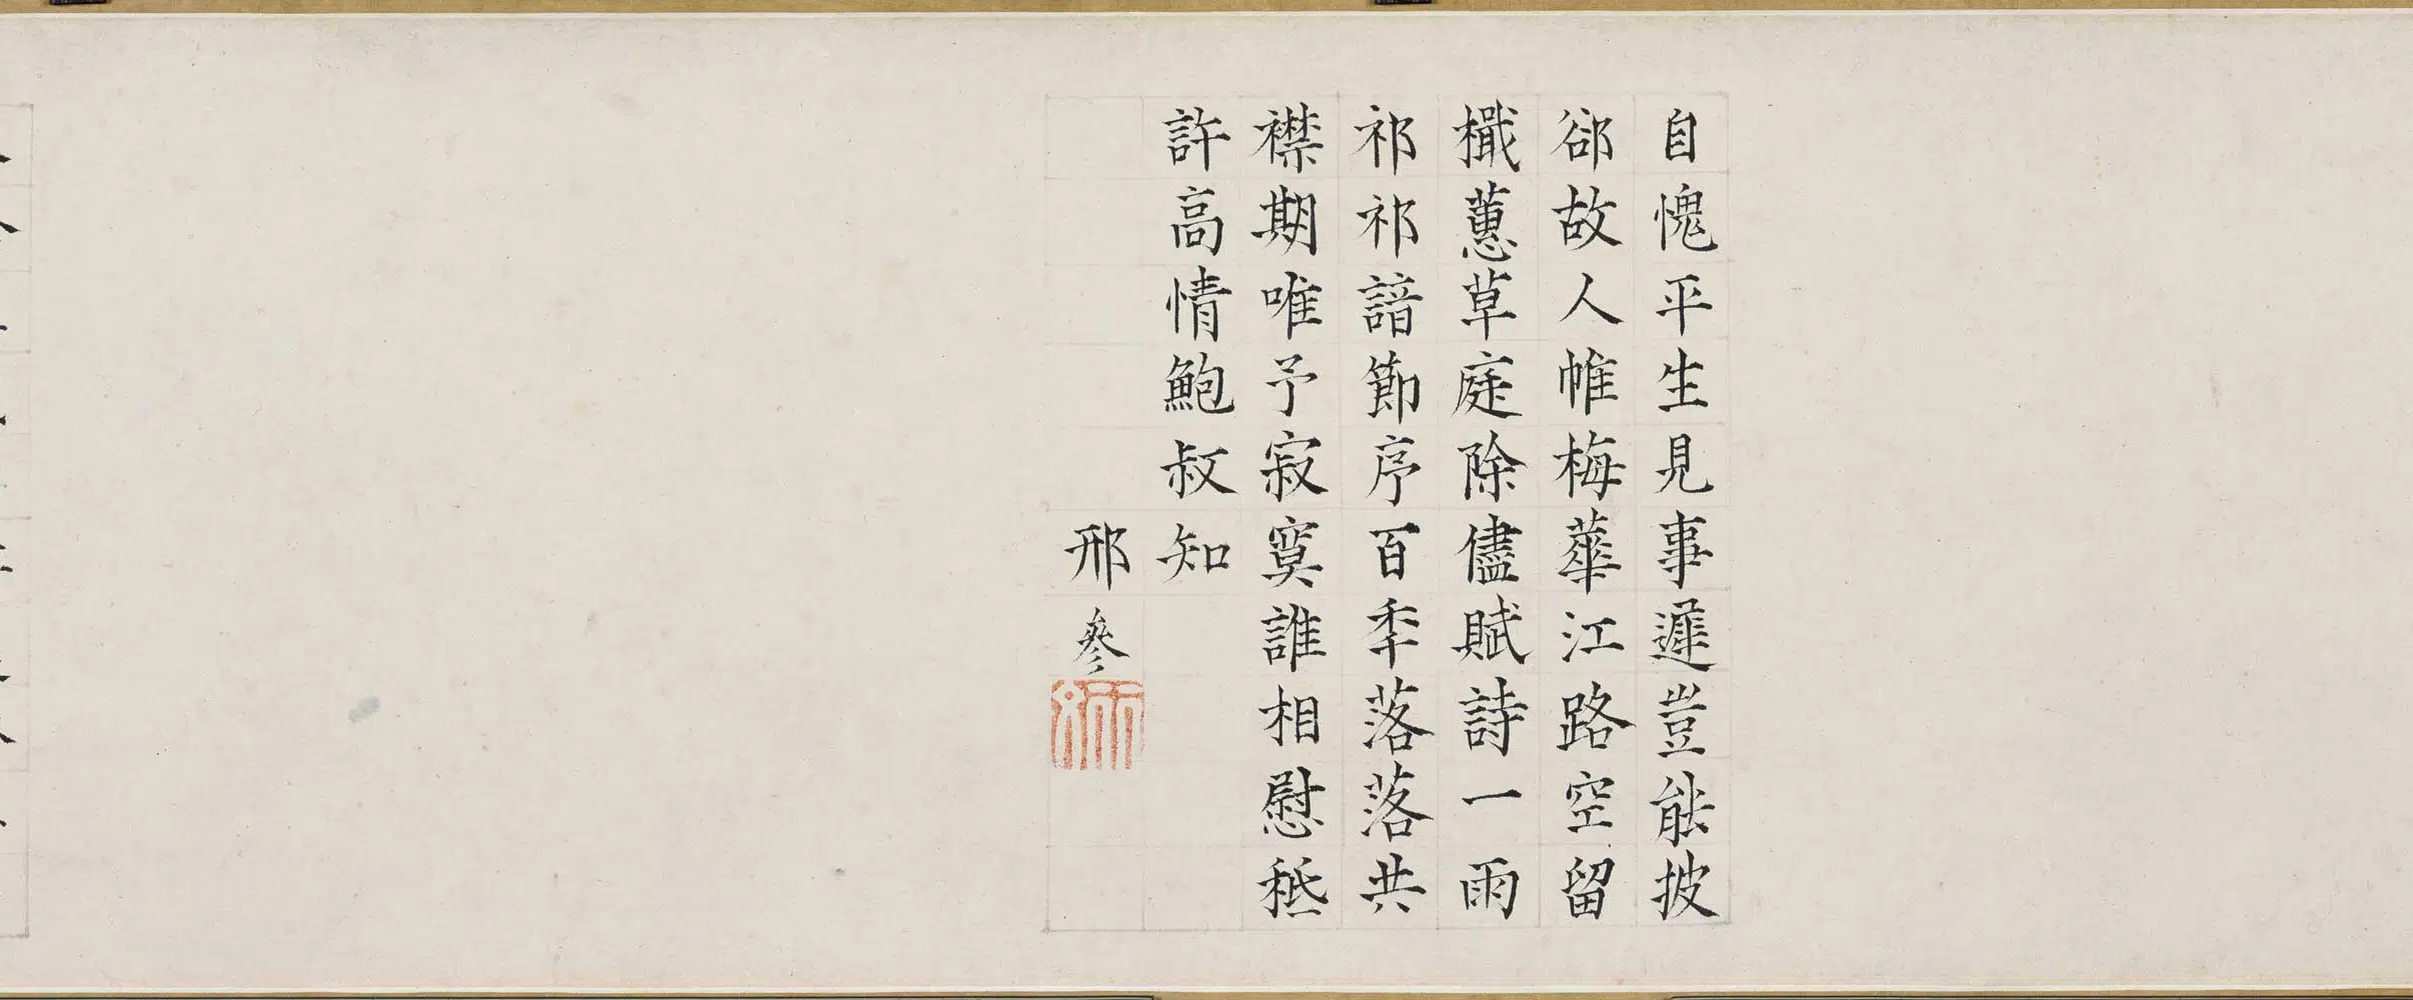 自愧平生見事遲豈能披
郤故人帷梅華江路空留
檝蕙草庭除儘賦詩一雨
祁祁諳節序百季落落共
襟期唯予寂寞誰相慰秪
許高情鮑叔知
邢參